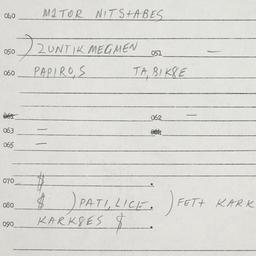 040 MITOR NITS+ABES
050 )ZUNTIKMEGMEN 051 —
060 PAPIRO,S TA,BIK8E
061 062 —
063 —
065 —
070 $ .
080 $ )PATI,LICE. )FET+ KARK
090 KARK8ES $